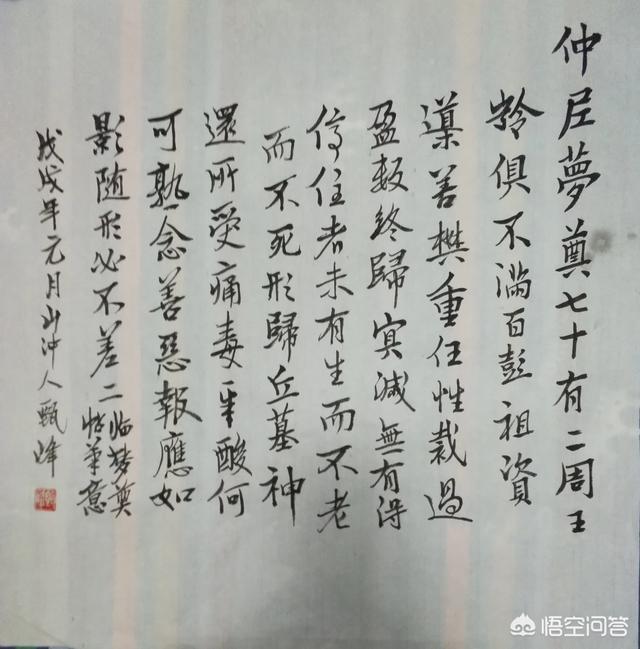 仲尼夢奠七十有二周王
齡俱不滿百彭祖資
導善樊重任性裁過
盈數終歸冥滅無有得
停住者未有生而不老
而不死形歸丘墓神
還所受痛毒辛酸何
可熟念善惡報應如
影随形必不差二
臨夢奠
帖筆意
戊戌年元月山冲人甄峰
悟空问答